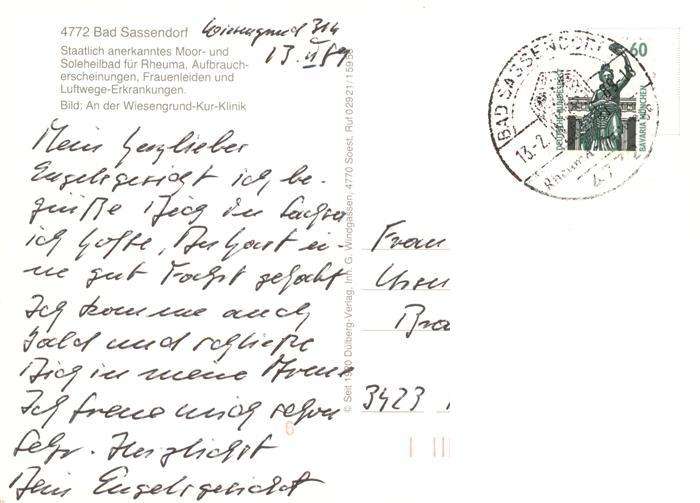 4772 Bad Sassendorf Wiesengrund 314
13. II 89
Staatlich anerkanntes Moor- und
Soleheilbad für Rheuma, Aufbrauch-
erscheinungen, Frauenleiden und
Luftwege-Erkrankungen.
Bild: An der Wiesengrund-Kur-Klinik
Mein herzliebes
Engelsgesicht ich be-
grüße Dich in
ich hoffe, Du hast ei-
ne gut Fahrt gehabt
Ich komme auch
bald und schließe
Dich in meine Arme
Ich freue mich schon
sehr. Herzlichst
Dein Engelsgesicht
Frau
3423
6
© Seit 1960 Dülberg-Verlag, Inh. G. Windgassen, 4770 Soest, Ruf 02921/
BAD SASSENDORF
13.-2.
Rheuma
477
60
DEUTSCHE BUNDESPOST
BAVARIA MÜNCHEN